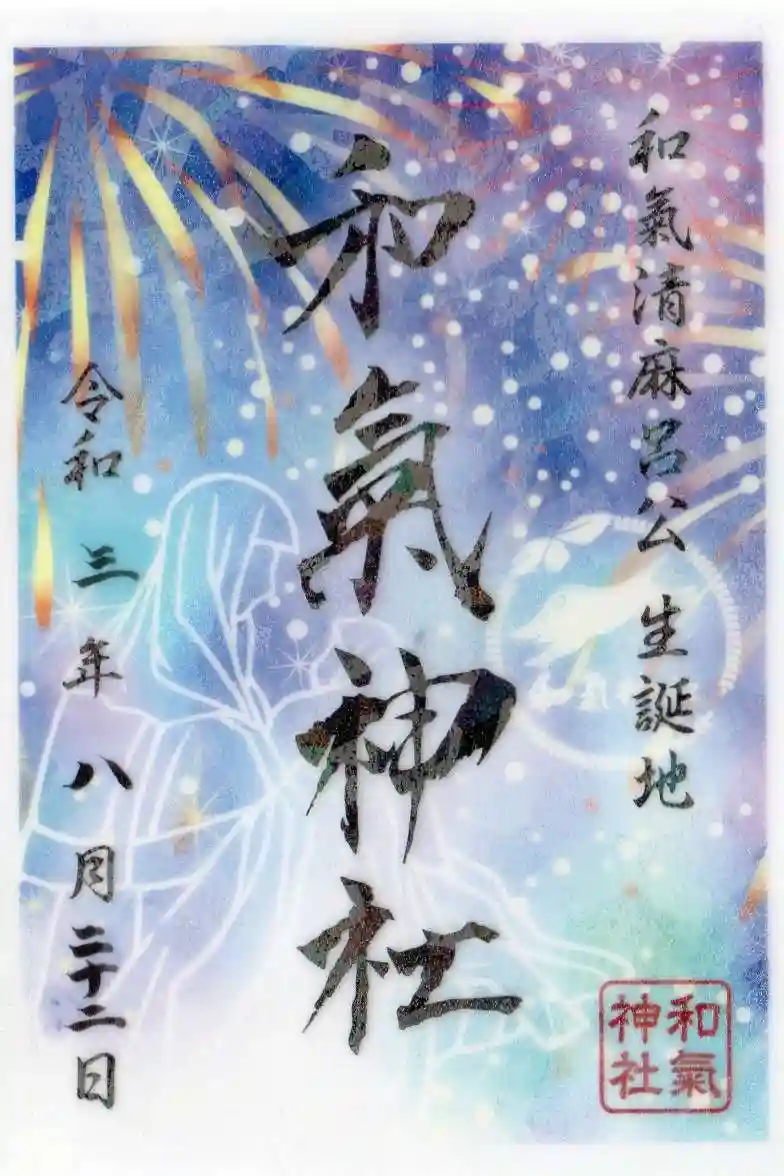 和氣清麻呂公 生誕地
和氣神社
令和 三年 八月二十二日
和氣
神社